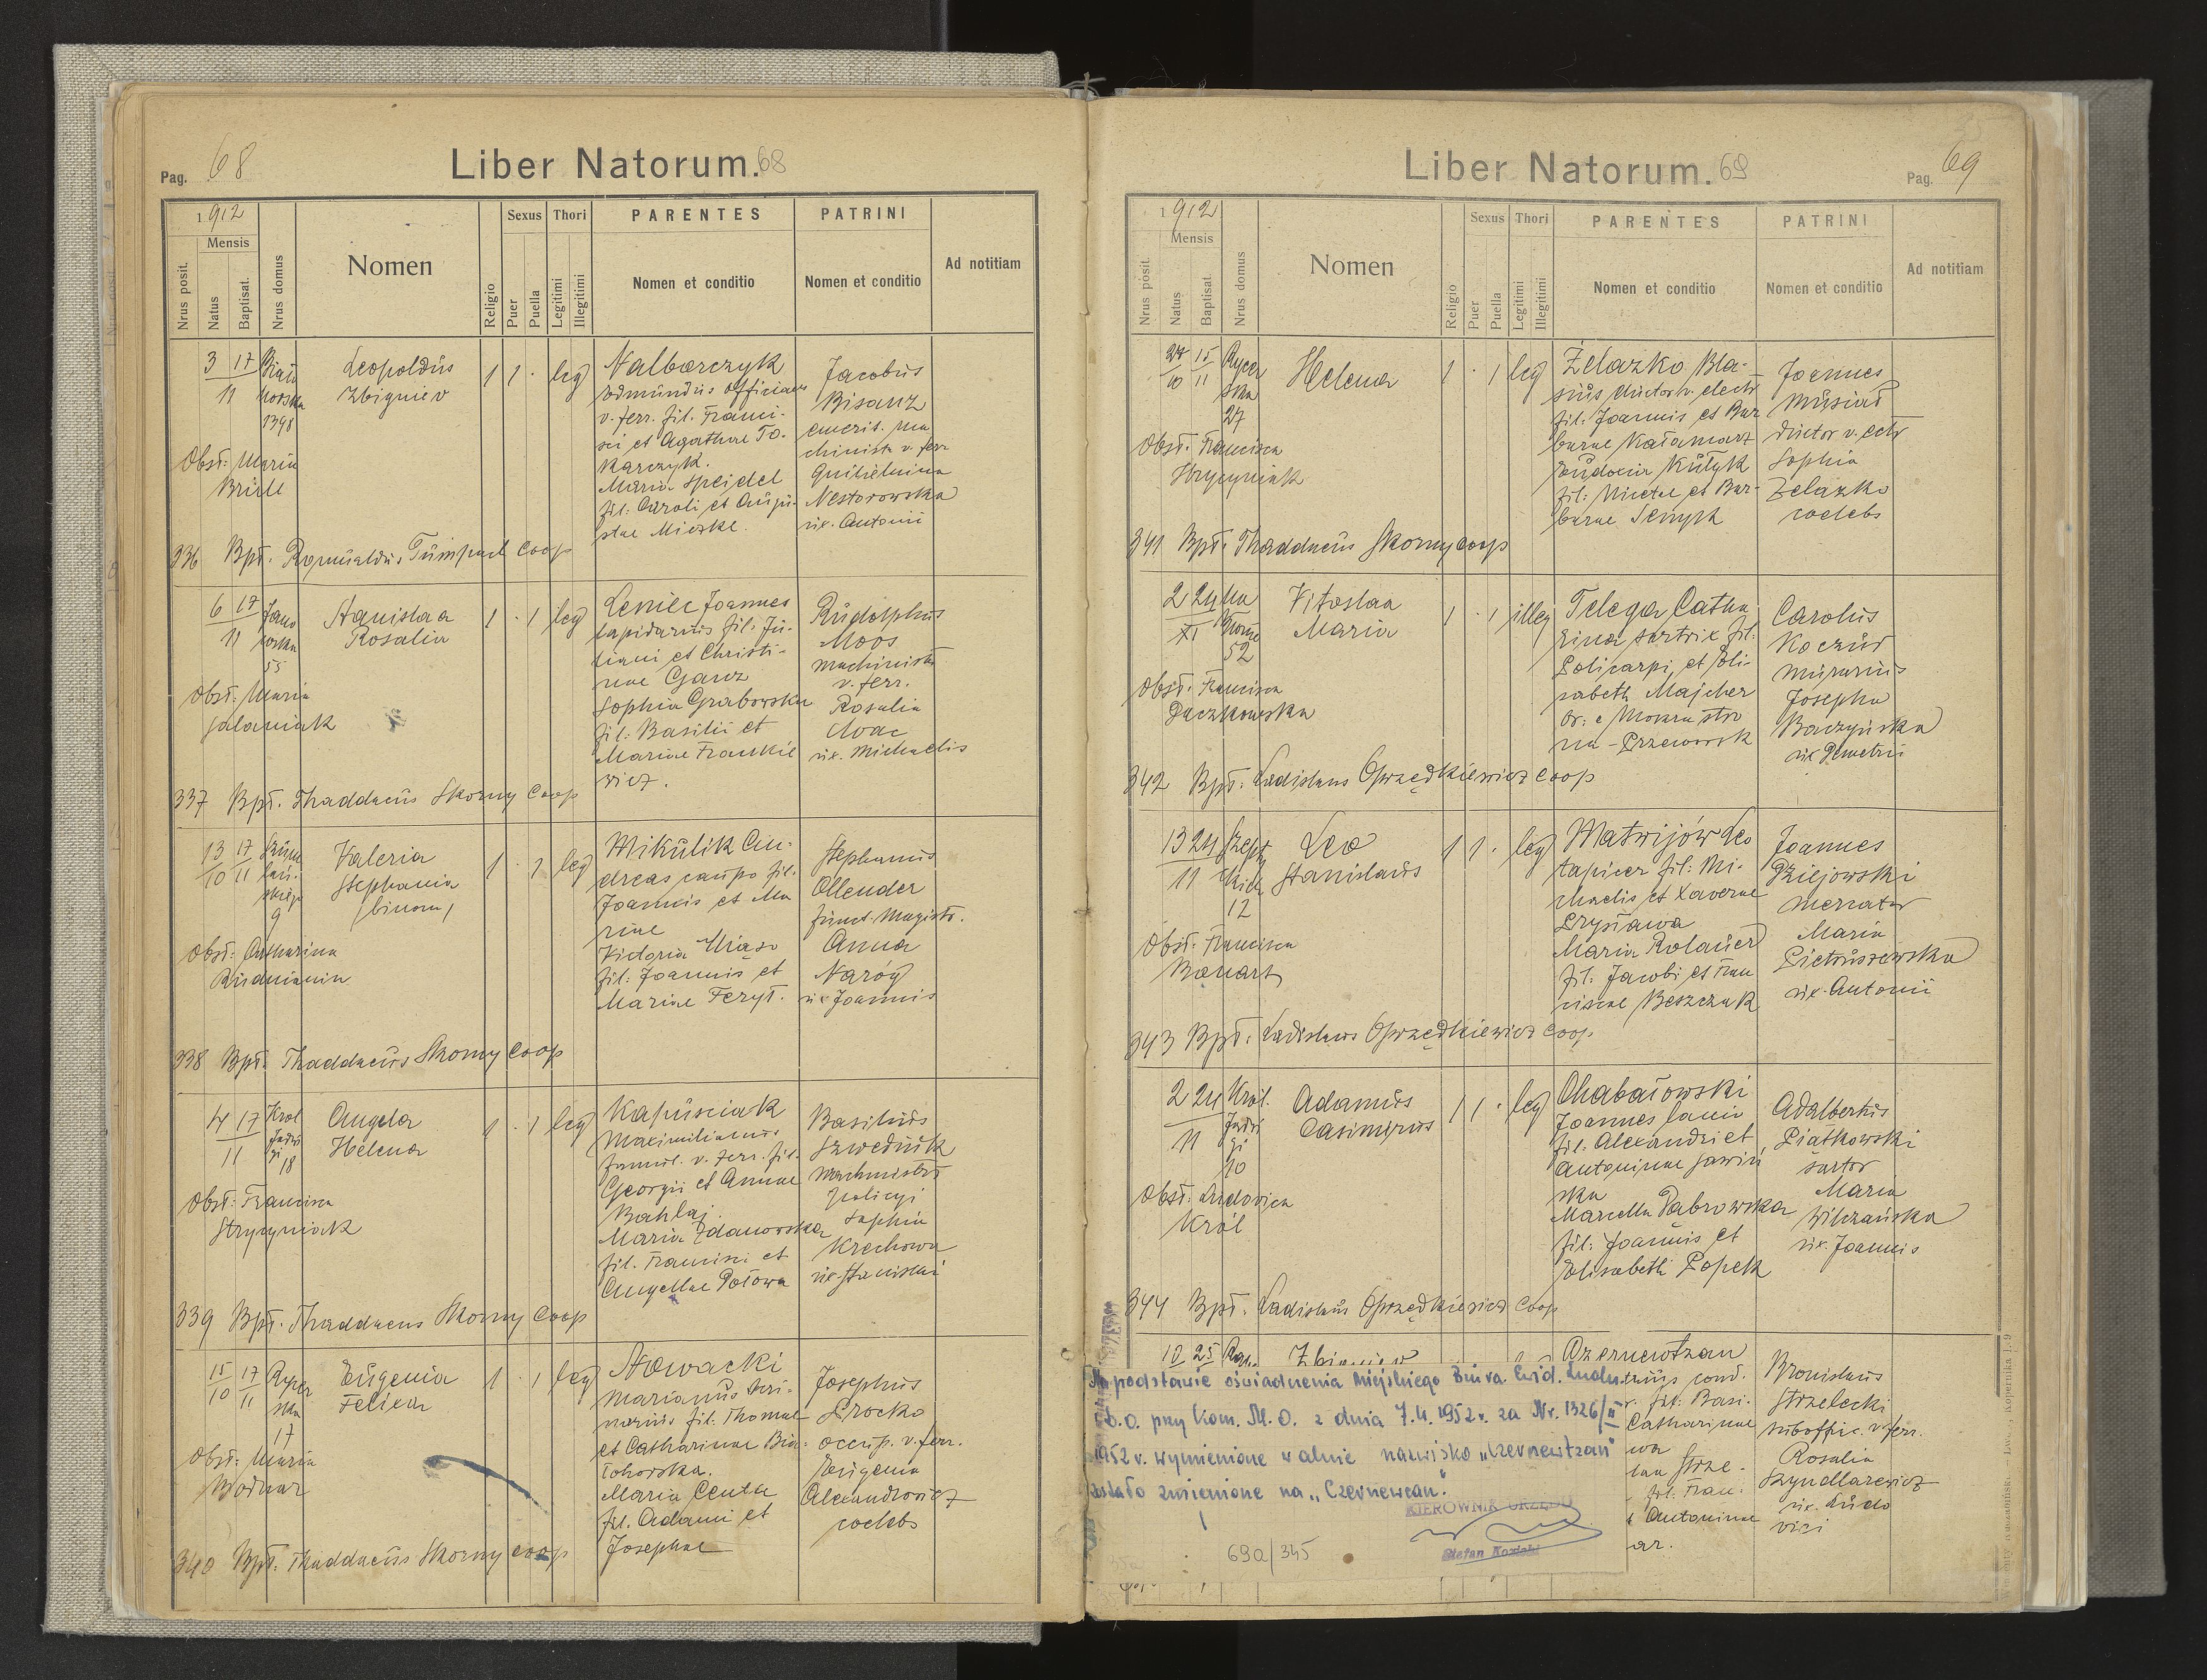 Pag. 68
Liber Natorum. 68
1912
Mensis
Nrus posit.
Natus
Baptisat.
Nrus domus
Nomen
Religio
Sexus
Puer
Puella
Thori
Legitimi
Illegitimi
PARENTES
Nomen et conditio
PATRINI
Nomen et conditio
Ad notitiam
3 17
11
1398
Leopoldus
Zbigniev
1 1 · leg
Nalborczyk
Edmundus
v. ferr. fil. Franci-
sci et Agathae To-
karczyk.
Maria Speidel
fil. Caroli et Augu-
stae Mieske.
Jacobus
Bisanz
emerit. ma
chinista v. ferr
Guilielmina
Nestorowska
ux. Antonii
Obst: Maria
336 Bpt. Romualdus Coop
6 17
11
Jano
wska
55
Stanislaa
Rosalia
1 · 1 leg
Joannes
lapidarius fil. Ju-
liani et Christi-
nae Ganz
Sophia Grabowska
fil. Basilii et
Mariae Frankie
wicz.
Rudolphus
Moos
machinista
v. ferr.
Rosalia
ux. Michaelis
Obst: Maria
Salaniak
337 Bpt. Thaddaeus Skorny Coop
13 17
10 11
9
Valeria
Stephania
/binom/
1 · 1 leg
Mikulik An-
dreas caupo fil.
Joannis et Ma
riae
Victoria
fil. Joannis et
Mariae Feryt.
Stephanus
Ollender
funct. Magistr.
Anna
Naróg
ux Joannis
Obst: Catharina
Rudnianin
338 Bpt. Thaddaeus Skorny Coop
4 17
11
Krol
Jadwi
gi 18
Angela
Helena
1 · 1 leg
Kapusciak
Maximilianus
famul. v. ferr. fil.
Georgii et Annae
Bahlaj.
Maria Zdanowska
fil. Francisci et
Angellae Potowa
Basilius
Szwednik
wachmistrz
policyi
Sophia
Krechowa
ux. Stanislai
Obst: Francisca
Stryzyniak
339 Bpt. Thaddaeus Skorny Coop
15 17
10 11
Rycer
ska
17
Eugenia
Felixa
1 · 1 leg
Nowacki
Marianus
fil. Thomae
et Catharinae Bia-
Maria Centa
fil. Adami et
Josephae
Josephus
Srocko
occup. v. ferr.
Eugenia
Alexandrowicz
coelebs
Obst: Maria
Bodnar
340 Bpt. Thaddaeus Skorny Coop
Liber Natorum. 69
Pag. 69
1912
Mensis
Nrus posit.
Natus
Baptisat
Nrus domus
Nomen
Religio
Sexus
Puer
Puella
Thori
Legitimi
Illegitimi
PARENTES
Nomen et conditio
PATRINI
Nomen et conditio
Ad notitiam
27 15
10 11
Rycer
ska
27
Helena
1 · 1 leg
Żelazko Bla-
sius ductor v. electr
fil. Joannis et Bar
barae Kałamarz
Eudocia Kułyk
fil: Nicetae et Bar-
barae Senyk
Joannes
Musiał
ductor v. eetr
Sophia
Żelazko
coelebs
Obst. Francisca
Stryzyniak
341 Bpt. Thaddaeus Skorny Coop
2 24
XI
Na
Błonie
52
Vitoslaa
Maria
1 · 1 illeg
Telega Catha
rina sartrix fil:
Policarpi et Eli-
sabeth Majcher
or: e Mokra stro
na - Przeworsk
Carolus
Koczur
murarius
Josepha
Baczyńska
ux Demetrii
Obst. Francisca
Daczkowska
342 Bpt: Ladislaus Oprzędkiewicz Coop
13 24
11
Szepty
ckich
12
Leo
Stanislaus
1 1 · leg
Matwijów Leo
tapicer fil: Mi-
chaelis et Xaverae
Prystawa
Maria Rolauer
fil. Jacobi et Fran
ciscae Beszczak
Joannes
Dziejowski
mercator
Maria
Pietruszewska
ux. Antonii
Obst: Francisca
343 Bpt: Ladislaus Oprzędkiewicz Coop.
2 24
11
Król.
Jadwi
gi
10
Adamus
Casimirus
1 1 · leg
Chabatowski
Joannes lanio
fil. Alexandri et
Antoninae Jawiń
ska
Marcella Dabrowska
fil: Joannis et
Elisabeth Popek
Adalbertus
Piatkowski
sartor
Maria
Wilczańska
ux. Joannis
Obst: Ludovica
Król
344 Bpt. Ladislaus Oprzędkiewicz Coop
10 25
Zbigniew
Czernewtzan
cond.
fil. Basi.
Catharinae
wa
Strze-
fil. Fran:
Antoninae
ar.
Bronislaus
Strzelecki
suboffic. v. ferr.
Rosalia
Szyndlarewicz
ux. Ludo
vici
Na podstawie oświadczenia Miejskiego Biura Ewid. Ludn.
i D.O. przy Kom. M.O. z dnia 7.4.1952 r. za Nr. 1326/II
1952 r. wymienione w akcie nazwisko „Czernewtzan"
zostało zmienione na „Czernewcan".
KIEROWNIK URZĘDU
Stefan Kozicki
69a/345